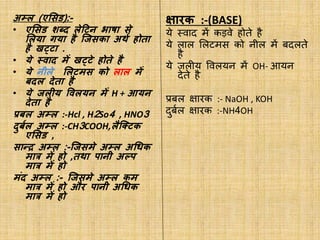 अम्ल (एसिड):-
• एसिड शब्द लेटिन भाषा से
लिया गया है जिसका अर्थ होता
है खट्टा .
• ये स्वाद में खट्टे होते है
• ये नीले लिटमस को लाल में
बदल देता है
• ये जलीय विलयन में H + आयन
देता है
प्रबल अम्ल :-Hcl , H2So4 , HNO3
दुर्बल अम्ल :-CH3COOH,लैक्टिक
एसिड ,
सान्द्र अम्ल :-जिसमे अम्ल अधिक
मात्र में हो ,तथा पानी अल्प
मात्र में हो
मंद अम्ल :- जिसमे अम्ल कम
मात्र में हो और पानी अधिक
मात्र में हो
क्षारक :-(BASE)
ये स्वाद में कड़वे होते है
ये लाल लिटमस को नील में बदलते
है
ये जलीय विलयन में OH- आयन
देते है
प्रबल क्षारक :- NaOH , KOH
दुर्बल क्षारक :-NH4OH